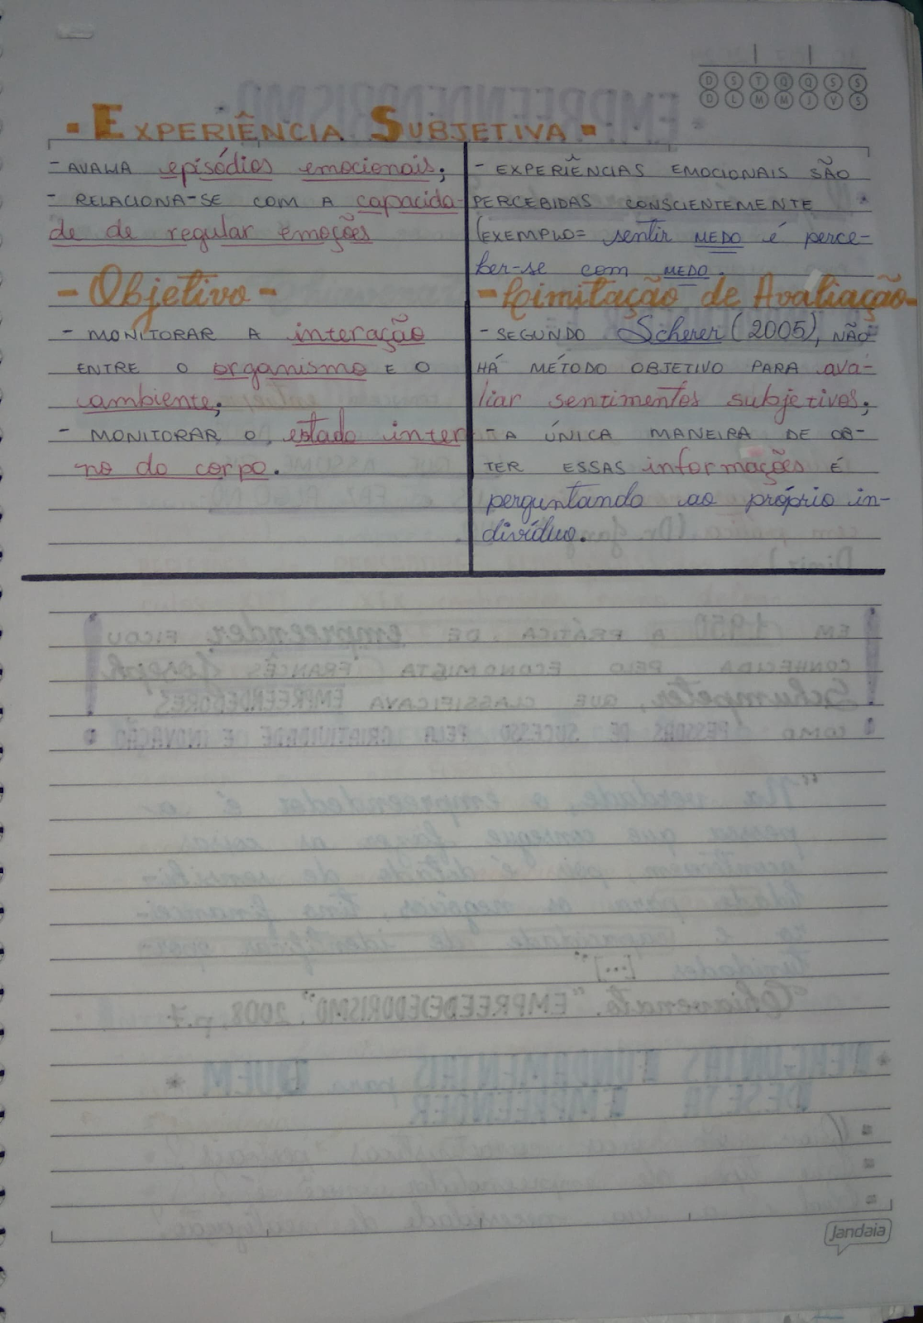 D S T Q Q S S
D L M M J V S
- EXPERIÊNCIA SUBJETIVA -
- AVALIA episódios emocionais;
- RELACIONA-SE COM A capacida-
de de regular emoções
- Objetivo -
- MONITORAR A interação
ENTRE O organismo E O
ambiente;
- MONITORAR O estado inter-
no do corpo.
- EXPERIÊNCIAS EMOCIONAIS SÃO
PERCEBIDAS CONSCIENTEMENTE
(EXEMPLO= sentir MEDO é perce-
ber-se com MEDO.
- Limitação de Avaliação -
- SEGUNDO Scherer (2005), NÃO
HÁ MÉTODO OBJETIVO PARA ava-
liar sentimentos subjetivos;
- A ÚNICA MANEIRA DE OB-
TER ESSAS informações É
perguntando ao próprio in-
divíduo.
Jandaia